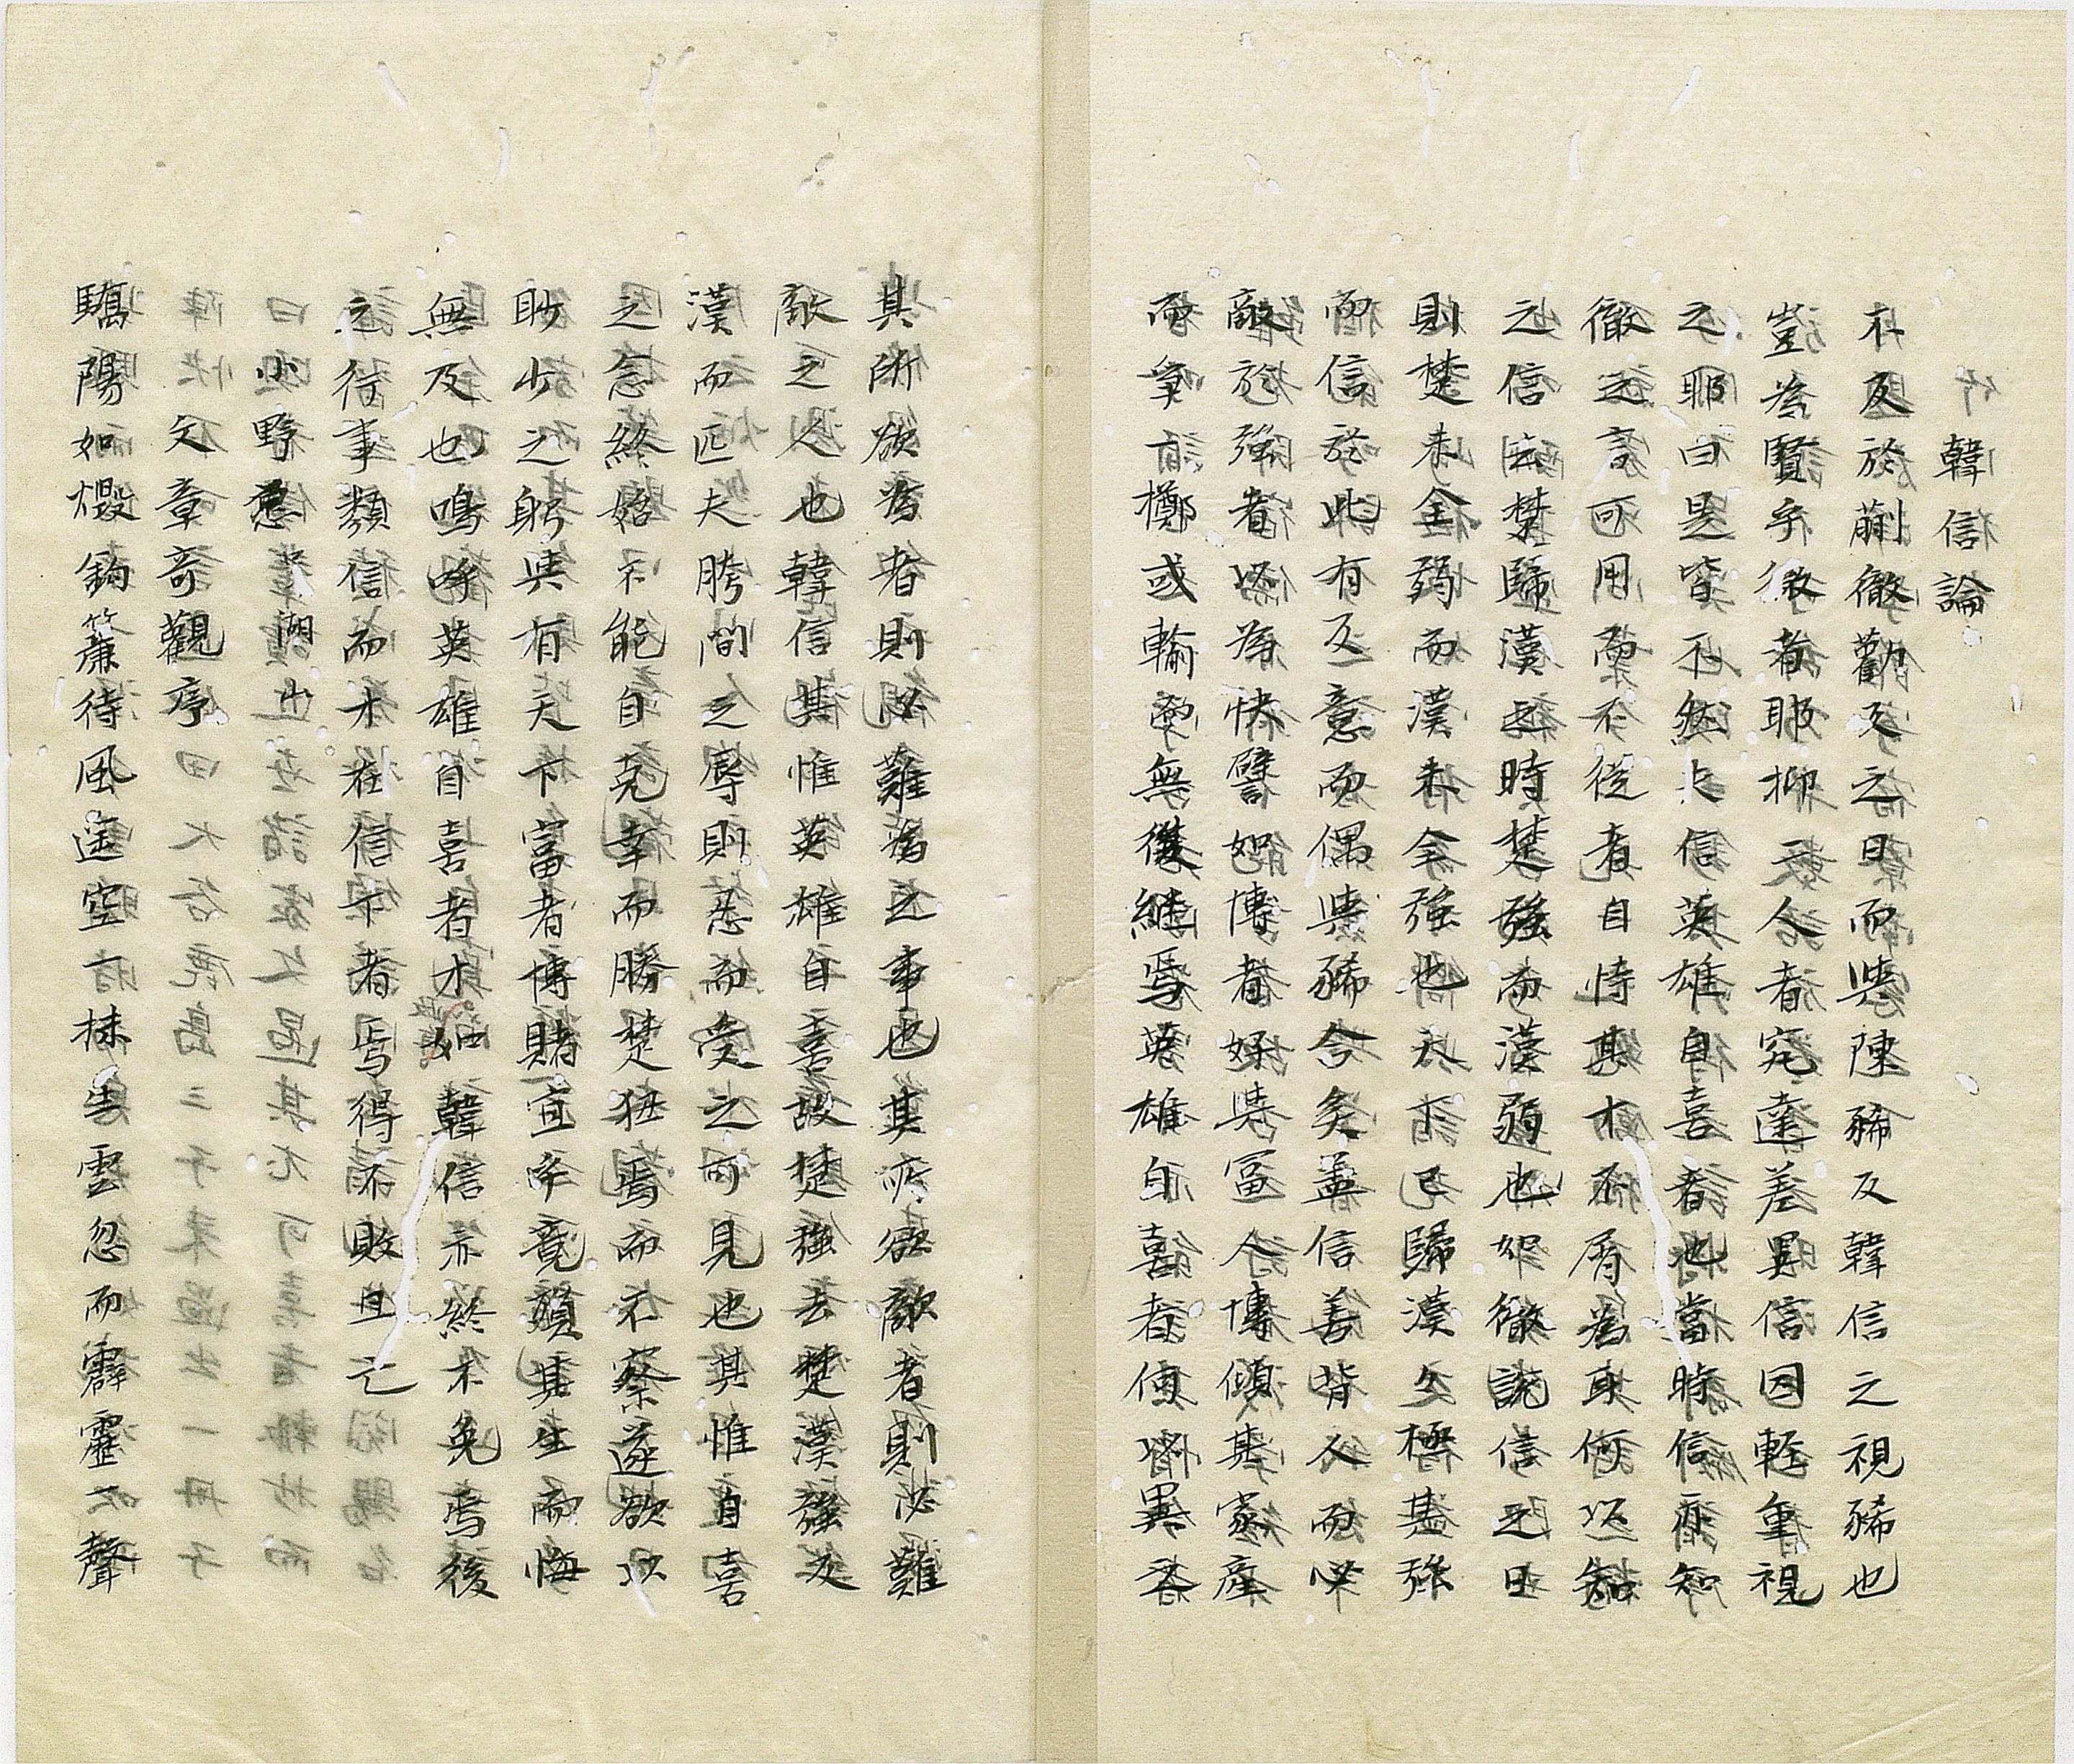 韓信論
不反於蒯徹勸反之日而與陳豨反韓信之視豨也
豈為賢乎徹者耶抑二人者究達差異信因輕重視
之耶曰是皆不然夫信英雄自喜者也當時信亦知
徹之言可用而不從者自恃其才不屑為耳何以知
之信去楚歸漢之時楚強而漢弱也如徹說信之日
則楚未全弱而漢未全強也天下已歸漢久極其強
而信於此有反意而偶與豨合矣蓋信善背人而必
敵於強者以為快譬如博者好與富人博傾其家產
而爭一擲或輸而無後繼焉英雄自喜者便以異
其所欲為者則必難為之事也其所欲敵者則必難
敵之人也韓信其惟英雄自喜故楚強去楚漢強反
漢而匹夫胯間之辱則忍而受之可見也其惟自喜
之念終始不能自克幸而勝楚狃焉而不察遂欲以
眇少之躬與有天下富者博賭宜乎竟殞其生而悔
無及也嗚呼英雄自喜者才如韓信亦終不免焉後
之行事類信而才在信下者焉得不敗且亡
小野愿 湖山
文章奇觀序
驕陽如燬鉤簾待風遙空一抹生雲忽而霹靂一聲